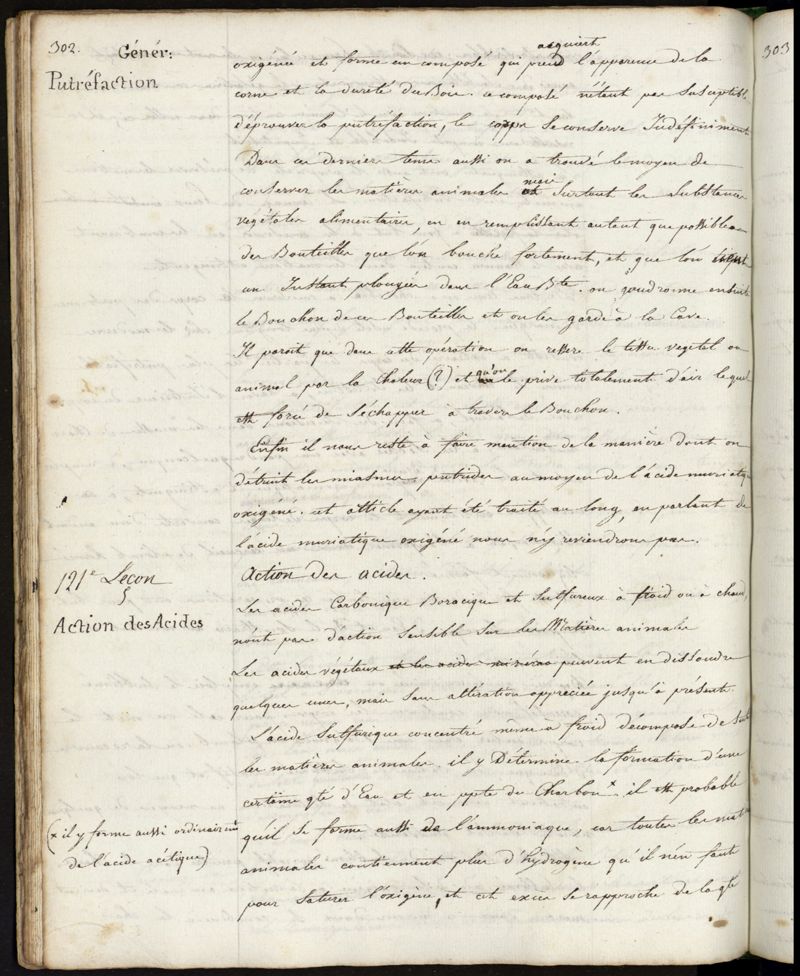 302.
Génér:
Putréfaction
acquiert
oxigéné et forme un composé qui prend l'apparence de la
corne et la dureté du Bois. ce composé n'étant pas susceptible
d'éprouver la putréfaction, le corps se conserve Indéfiniment
Dans ces derniers tems aussi on a trouvé le moyen de
mais
conserver les matières animales et surtout les substances
vegétales alimentaires, en en remplissant autant que possible
des Bouteilles que l'on bouche fortement, et que l'on
un Instant plongées dans l'Eau Bte. on goudronne ensuite
le Bouchon de ces Bouteilles et on les garde à la Cave.
Il parait que dans cette opération on resserre le tissu vegetal ou
animal par la chaleur (?) et qu'on le prive totalement d'air lequel
est forcé de s'échapper à travers le Bouchon.
Enfin il nous reste à faire mention de la manière dont on
détruit les miasmes putrides au moyen de l'acide muriatique
oxigéné. cet article ayant été traité au long, en parlant de
l'acide muriatique oxigéné nous n'y reviendrons pas.
121e Lecon
§
Action des Acides
Action des acides.
Les acides Carbonique Boracique et Sulfureux à froid ou à chaud,
n'ont pas d'action sensible sur les Matières animales
Les acides végétaux et les acides minéraux peuvent en dissoudre
quelques unes, mais sans altération appreciée jusqu'à présent.
L'acide Sulfurique concentré même à froid décompose de suite
les matières animales. il y Détermine la formation d'une
certaine qté d'Eau et en ppte du Charbon x. il est probable
qu'il se forme aussi de l'ammoniaque, car toutes les mat
animales contiennent plus d'hydrogène qu'il n'en faut
pour saturer l'oxigène, et cet excès se rapproche de la qté
(x il y forme aussi ordinairemt
de l'acide acétique)
303